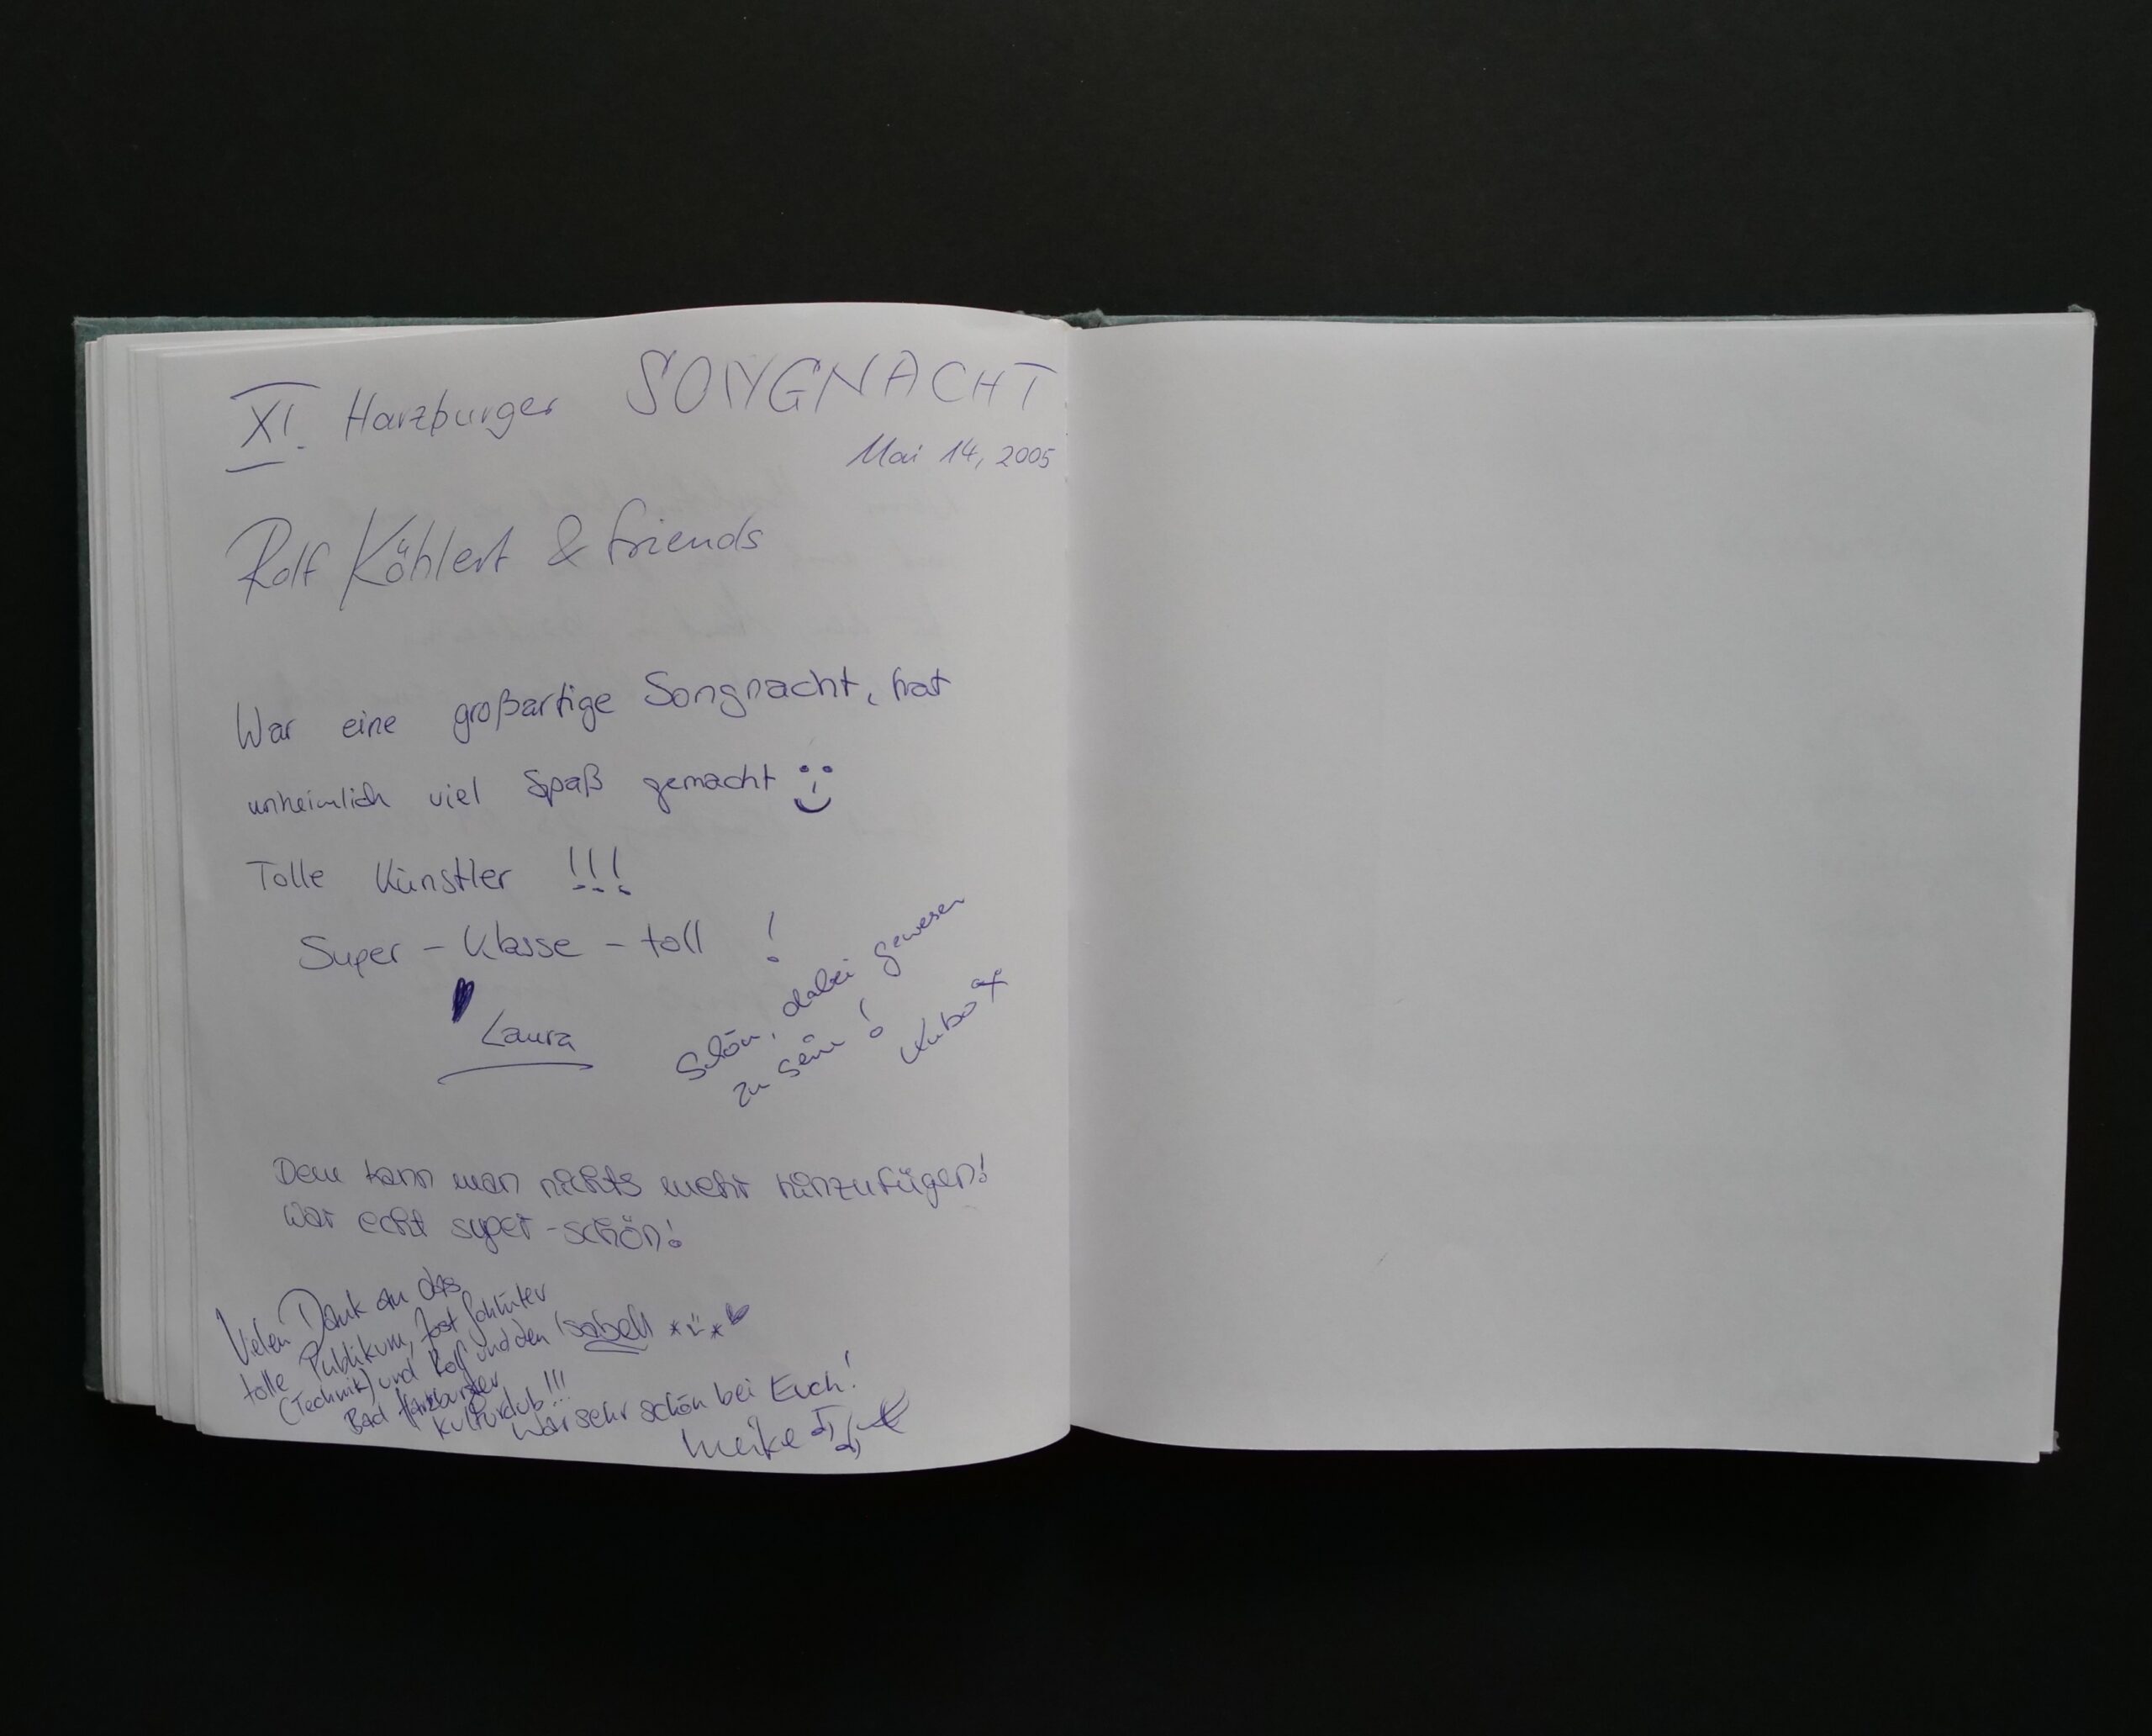 XI. Harzburger SONGNACHT
Mai 14, 2005
Rolf Köhlert & friends
War eine großartige Songnacht, hat
unheimlich viel Spaß gemacht
Tolle Künstler !!!
Super - Klasse - toll !
Laura
Schön, dabei gewesen
zu sein!
Dem kann man nichts mehr hinzufügen!
War echt super-schön!
Isabell
Vielen Dank an das
tolle Publikum,
(Technik) und Rolf und den
Bad Harzburger
Kulturclub!!!
War sehr schön bei Euch!
Meike